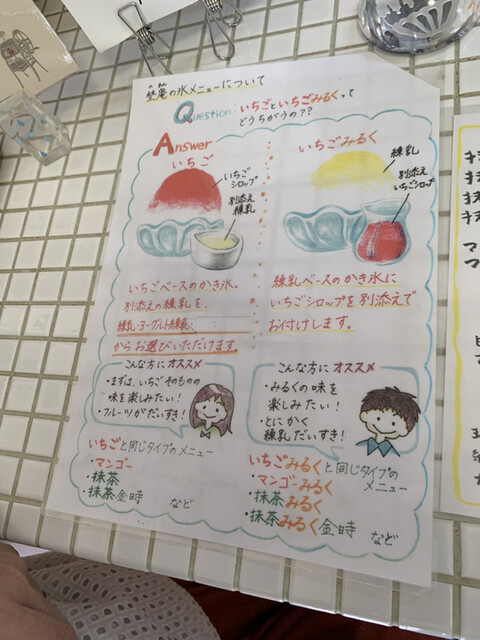 埜庵の氷メニューについて
Question: いちごといちごみるくって
どうちがうの??
Answer
いちご
いちご
シロップ
別添え
練乳
いちごベースのかき氷。
別添えの練乳を、
練乳・ヨーグルト練乳
からお選びいただけます。
こんな方にオススメ
・まずは、いちごそのものの
味を楽しみたい!
・フルーツがだいすき!
いちごと同じタイプのメニュー
・マンゴー
・抹茶
・抹茶金時 など
いちごみるく
練乳
別添え
いちごシロップ
練乳ベースのかき氷に
いちごシロップを別添えで
お付けします。
こんな方にオススメ
・みるくの味を
楽しみたい!
・とにかく
練乳だいすき!
いちごみるくと同じタイプの
メニュー
・マンゴーみるく
・抹茶みるく
・抹茶みるく金時 など